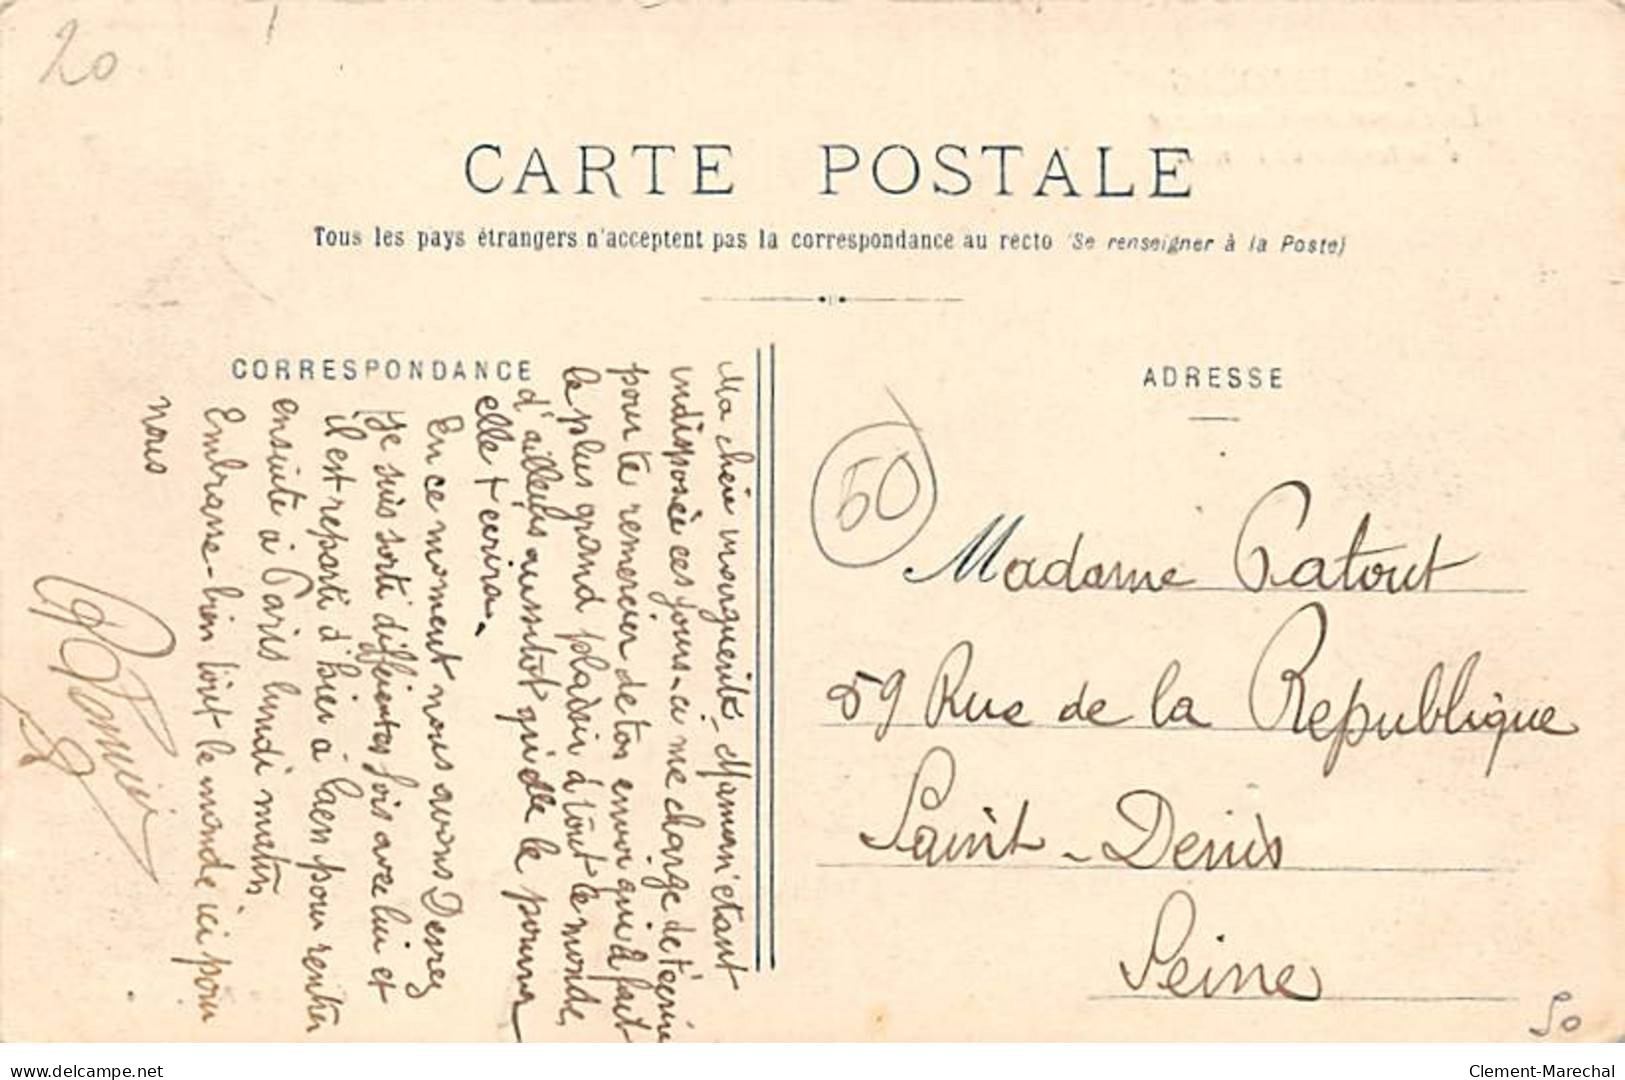 20
CARTE POSTALE
Tous les pays étrangers n'acceptent pas la correspondance au recto (Se renseigner à la Poste)
CORRESPONDANCE
Ma chère marguerite, Maman étant
indisposée ces jours-ci me charge de t'écrire
pour te remercier de ton envoi qui a fait
le plus grand plaisir à tout le monde,
d'ailleurs aussitôt qu'elle le pourra
elle t'écrira.
En ce moment nous avons Desrez
je suis sorti différentes fois avec lui et
il est reparti d'hier à Caen pour rentrer
ensuite à Paris lundi matin
Embrasse-bien tout le monde ici pour
nous
ADRESSE
50
Madame Patout
59 Rue de la Republique
Saint-Denis
Seine
50
delcampe.net
Clement-Marechal